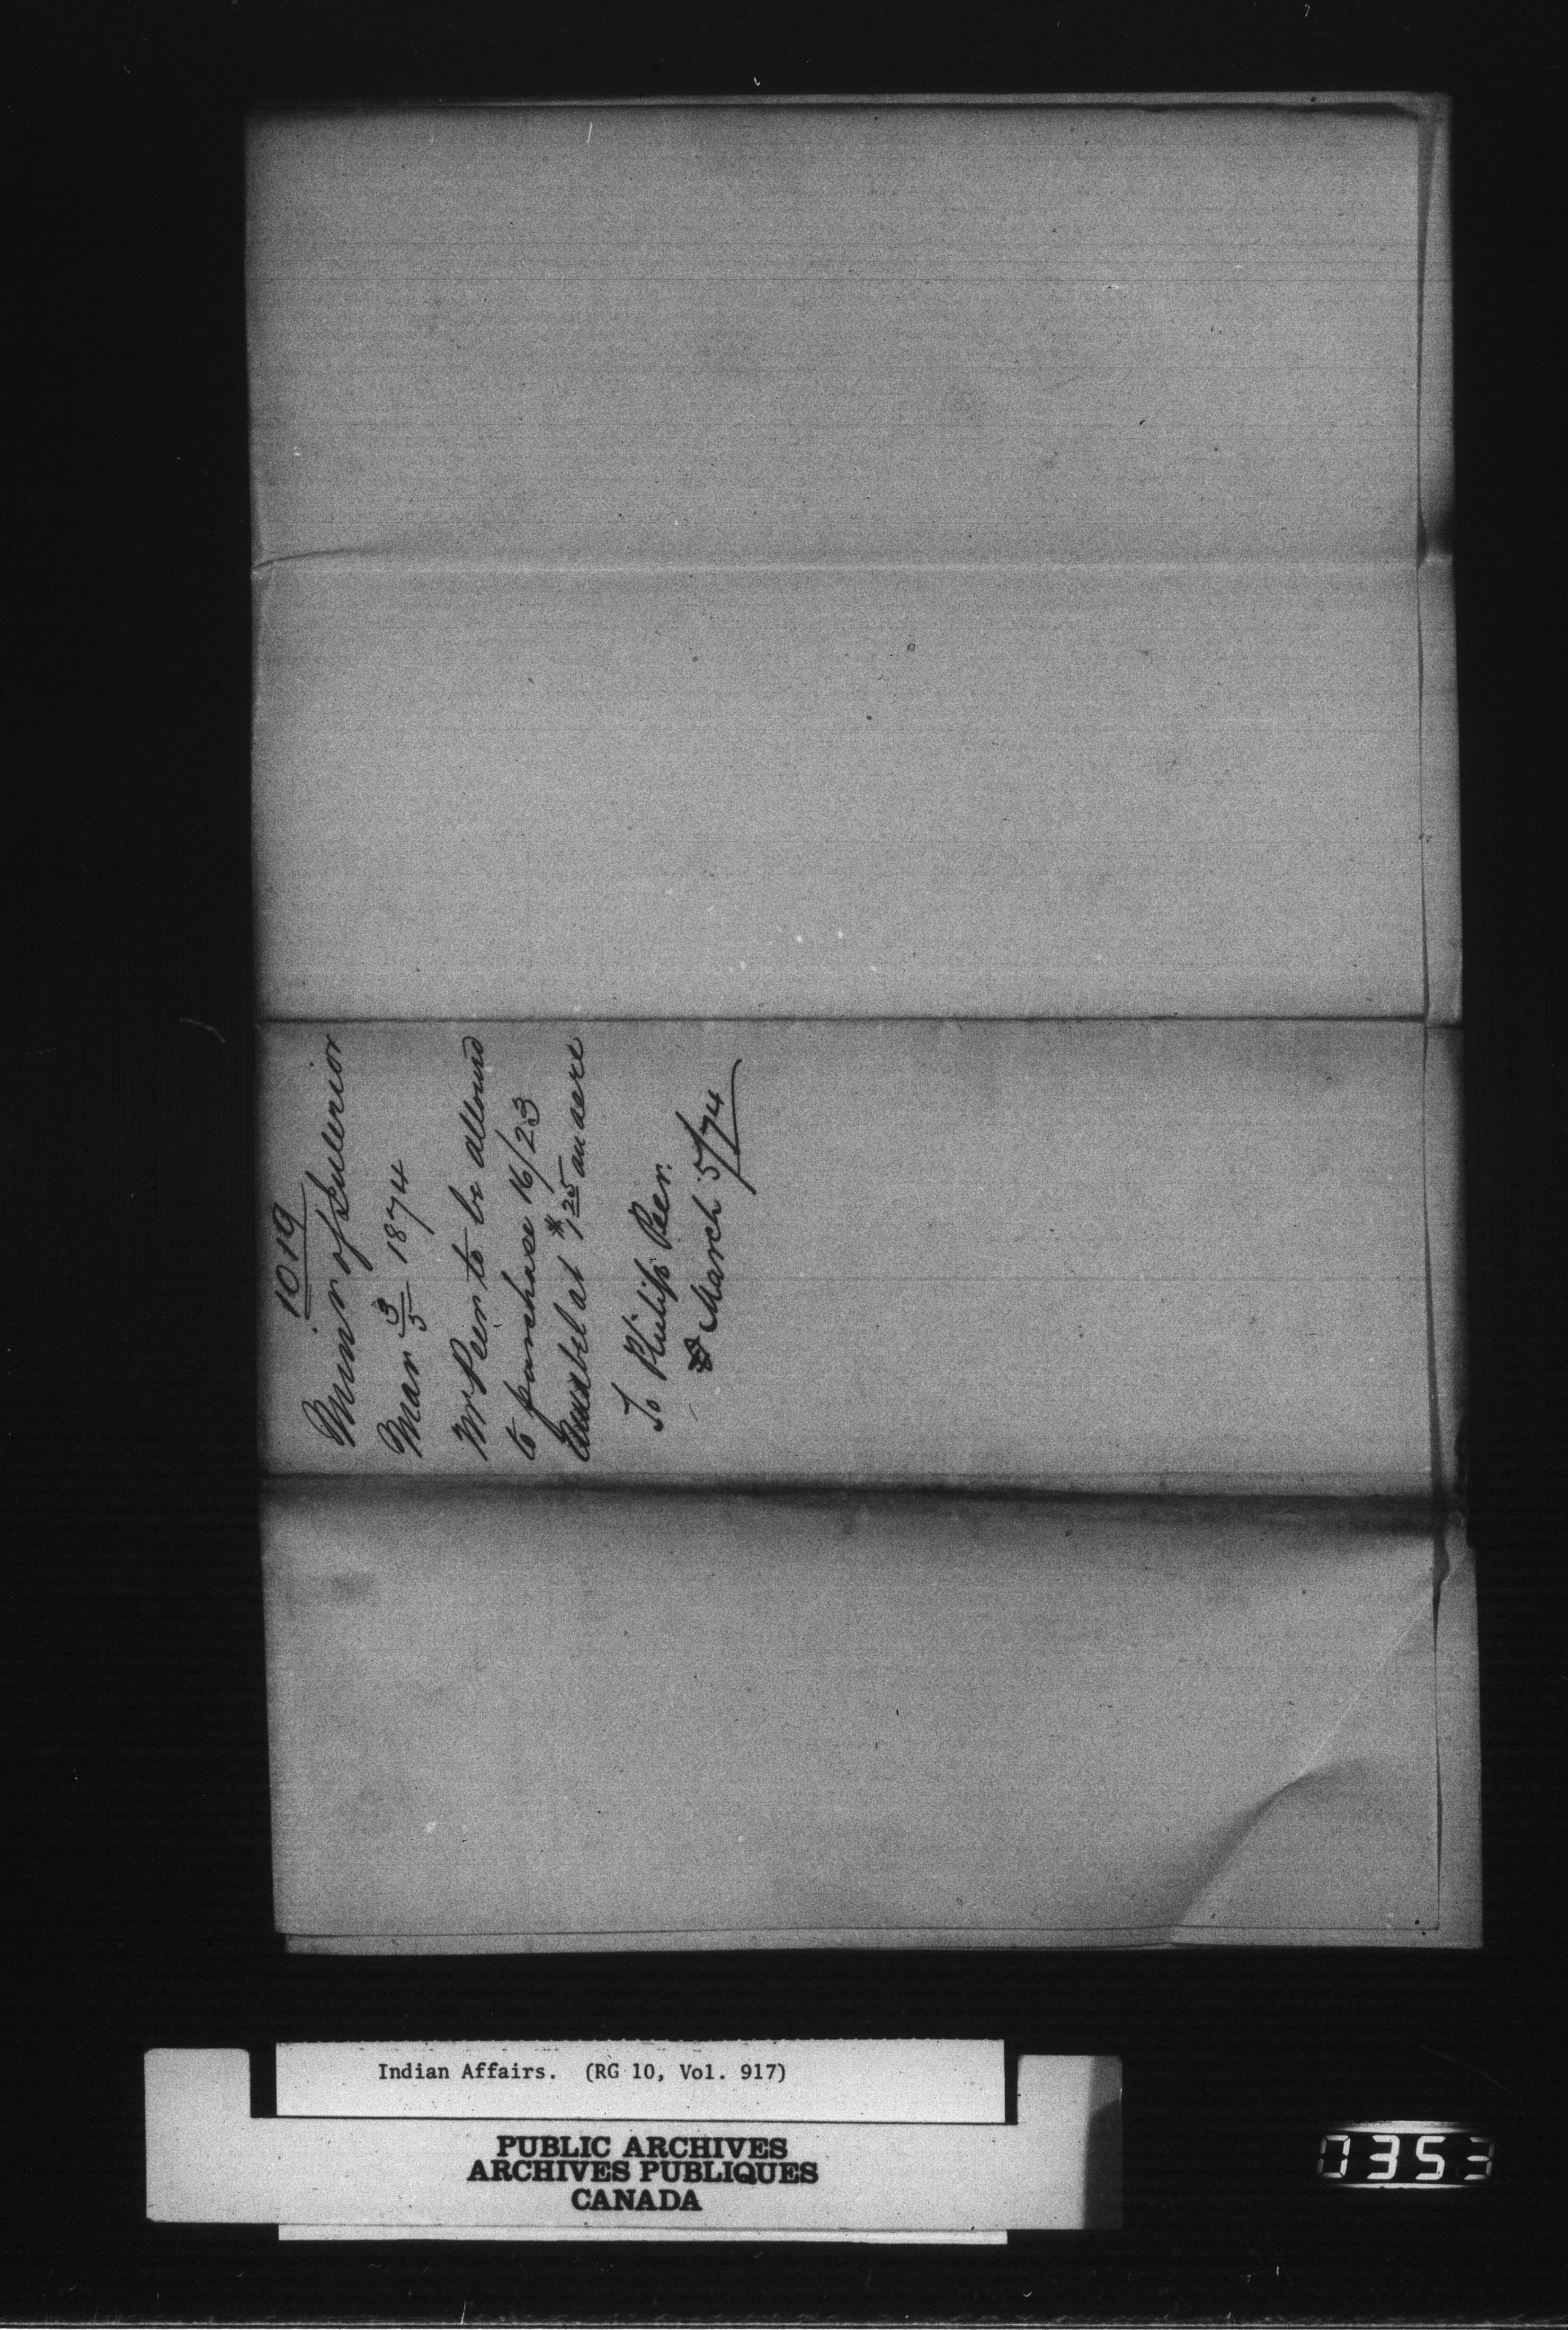 1019
Minr of Interior
Mar 3/5 1874
Mr Peer to be allowed
to purchase 16/23
Amabel at $1 25 an acre
To Philip Peer.
March 5/74
Indian Affairs. (RG 10, Vol. 917)
PUBLIC ARCHIVES
ARCHIVES PUBLIQUES
CANADA
0353